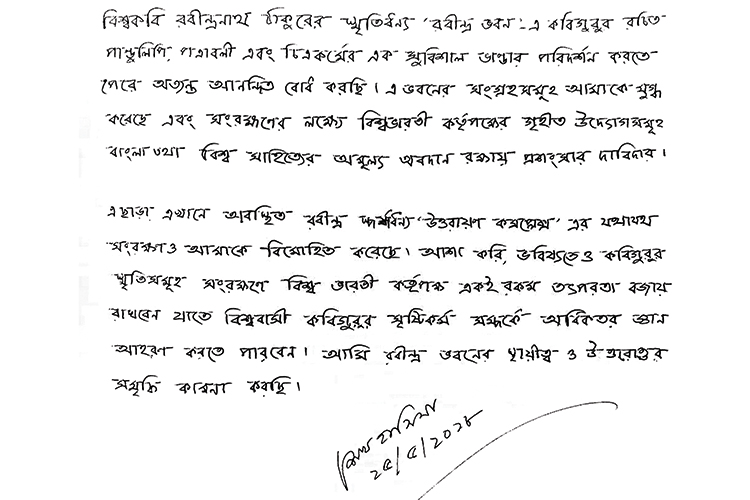 বিশ্বকবি রবীন্দ্রনাথ ঠাকুরের স্মৃতিধন্য 'রবীন্দ্র ভবন'-এ কবিগুরুর রচিত
পান্ডুলিপি, পত্রাবলী এবং চিত্রকর্মের এক সুবিশাল ভাণ্ডার পরিদর্শন করতে
পেরে অত্যন্ত আনন্দিত বোধ করছি। এ ভবনের সংগ্রহসমূহ আমাকে মুগ্ধ
করেছে এবং সংরক্ষণের লক্ষ্যে বিশ্বভারতী কর্তৃপক্ষের গৃহীত উদ্যোগসমূহ
বাংলা তথা বিশ্ব সাহিত্যের অমূল্য অবদান রক্ষায় প্রশংসার দাবিদার।
এছাড়া এখানে অবস্থিত রবীন্দ্র স্পর্শধন্য 'উত্তরায়ণ কমপ্লেক্স' এর যথাযথ
সংরক্ষণও আমাকে বিমোহিত করেছে। আশা করি, ভবিষ্যতেও কবিগুরুর
স্মৃতিসমূহ সংরক্ষণে বিশ্ব ভারতী কর্তৃপক্ষ একই রকম তৎপরতা বজায়
রাখবেন যাতে বিশ্ববাসী কবিগুরুর সৃষ্টিকর্ম সম্পর্কে অধিকতর জ্ঞান
আহরণ করতে পারবেন। আমি রবীন্দ্র ভবনের স্থায়ীত্ব ও উত্তরোত্তর
সমৃদ্ধি কামনা করছি।
শেখ হাসিনা
২৫/৫/২০১৮